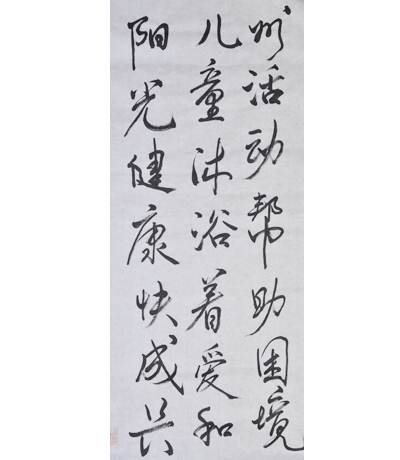 活动帮助困境
儿童沐浴着爱和
阳光健康快成长